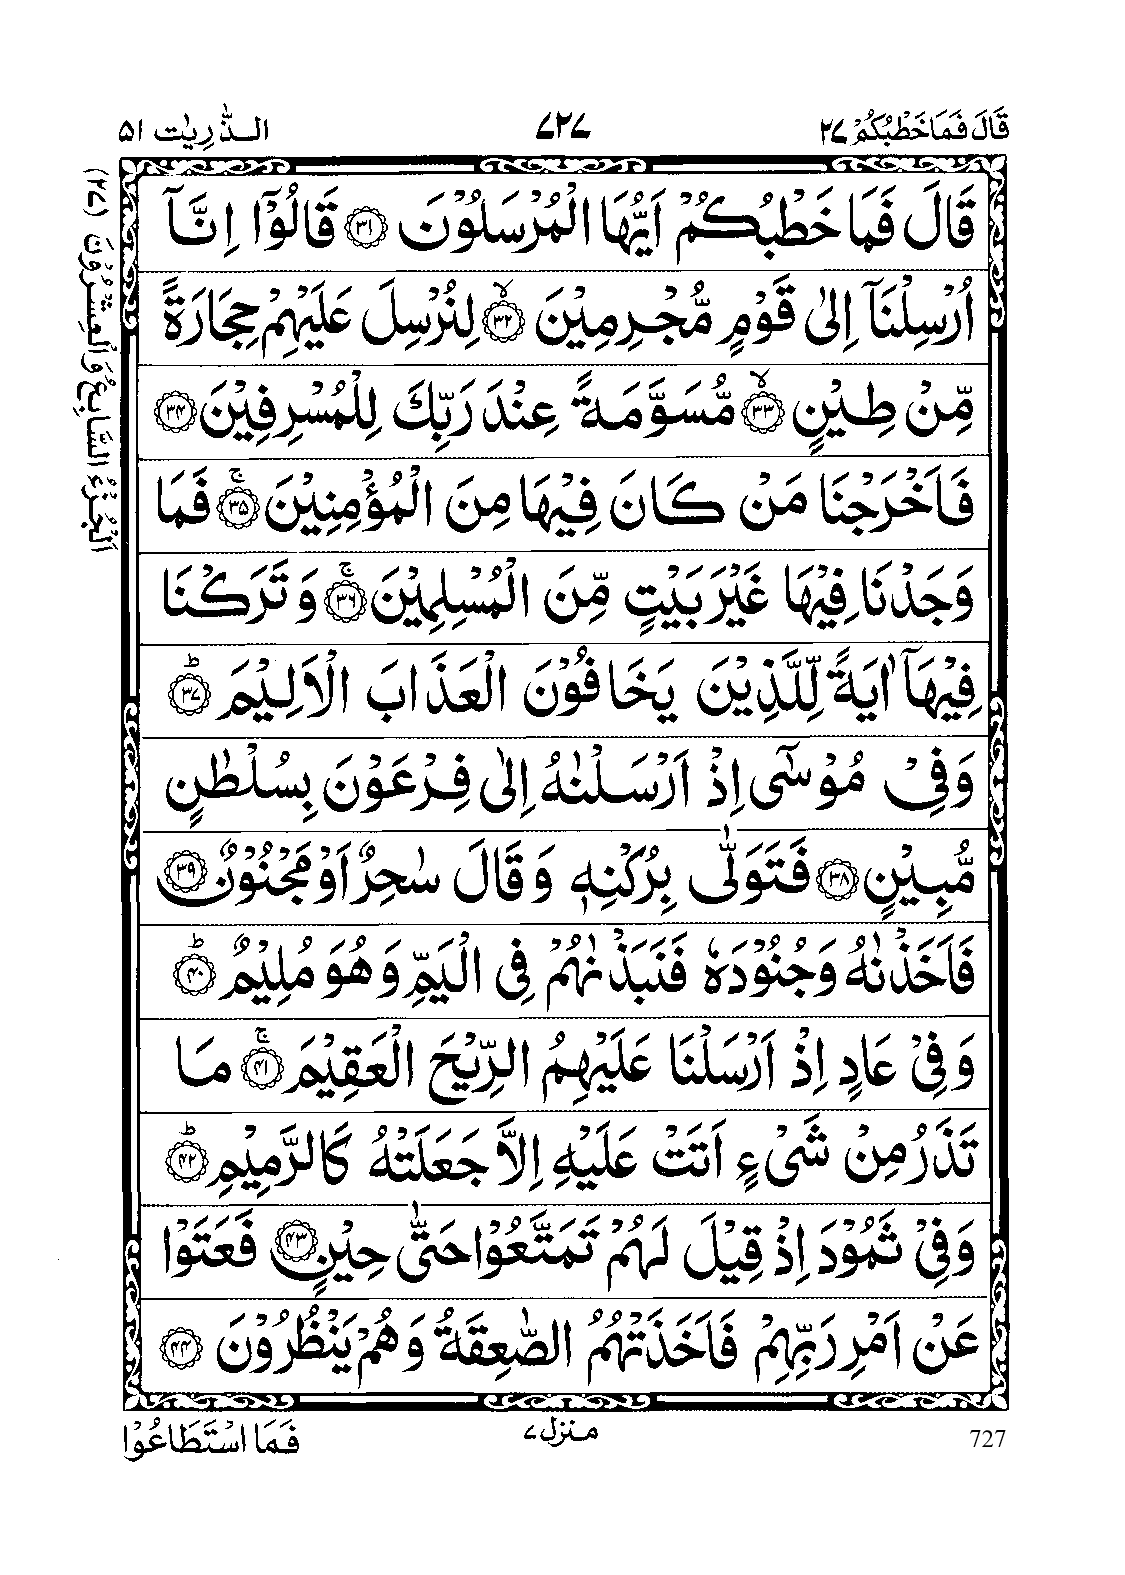 قَالَ فَمَا خَطْبُكُمْ ٢٧
٧٢٧
الذّٰرِيٰت ٥١
اَلْجُزْءُ السَّابِعُ وَالْعِشْرُوْنَ (٢٧)
قَالَ فَمَا خَطْبُكُمْ اَيُّهَا الْمُرْسَلُوْنَ ﴿٣١﴾ قَالُوْۤا اِنَّاۤ
اُرْسِلْنَاۤ اِلٰى قَوْمٍ مُّجْرِمِيْنَ ﴿٣٢﴾ۙ لِنُرْسِلَ عَلَيْهِمْ حِجَارَةً
مِّنْ طِيْنٍ ﴿٣٣﴾ۙ مُّسَوَّمَةً عِنْدَ رَبِّكَ لِلْمُسْرِفِيْنَ ﴿٣٤﴾
فَاَخْرَجْنَا مَنْ كَانَ فِيْهَا مِنَ الْمُؤْمِنِيْنَ ﴿٣٥﴾ۚ فَمَا
وَجَدْنَا فِيْهَا غَيْرَ بَيْتٍ مِّنَ الْمُسْلِمِيْنَ ﴿٣٦﴾ۚ وَ تَرَكْنَا
فِيْهَاۤ اٰيَةً لِّلَّذِيْنَ يَخَافُوْنَ الْعَذَابَ الْاَلِيْمَ ﴿٣٧﴾ؕ
وَفِيْ مُوْسٰۤى اِذْ اَرْسَلْنٰهُ اِلٰى فِرْعَوْنَ بِسُلْطٰنٍ
مُّبِيْنٍ ﴿٣٨﴾ فَتَوَلّٰى بِرُكْنِهٖ وَ قَالَ سٰحِرٌ اَوْ مَجْنُوْنٌ ﴿٣٩﴾
فَاَخَذْنٰهُ وَجُنُوْدَهٗ فَنَبَذْنٰهُمْ فِى الْيَمِّ وَ هُوَ مُلِيْمٌ ﴿٤٠﴾ؕ
وَفِيْ عَادٍ اِذْ اَرْسَلْنَا عَلَيْهِمُ الرِّيْحَ الْعَقِيْمَ ﴿٤١﴾ۚ مَا
تَذَرُ مِنْ شَىْءٍ اَتَتْ عَلَيْهِ اِلَّا جَعَلَتْهُ كَالرَّمِيْمِ ﴿٤٢﴾ؕ
وَفِيْ ثَمُوْدَ اِذْ قِيْلَ لَهُمْ تَمَتَّعُوْا حَتّٰى حِيْنٍ ﴿٤٣﴾ فَعَتَوْا
عَنْ اَمْرِ رَبِّهِمْ فَاَخَذَتْهُمُ الصّٰعِقَةُ وَ هُمْ يَنْظُرُوْنَ ﴿٤٤﴾
فَمَا اسْتَطَاعُوْا
منزل ٧
727